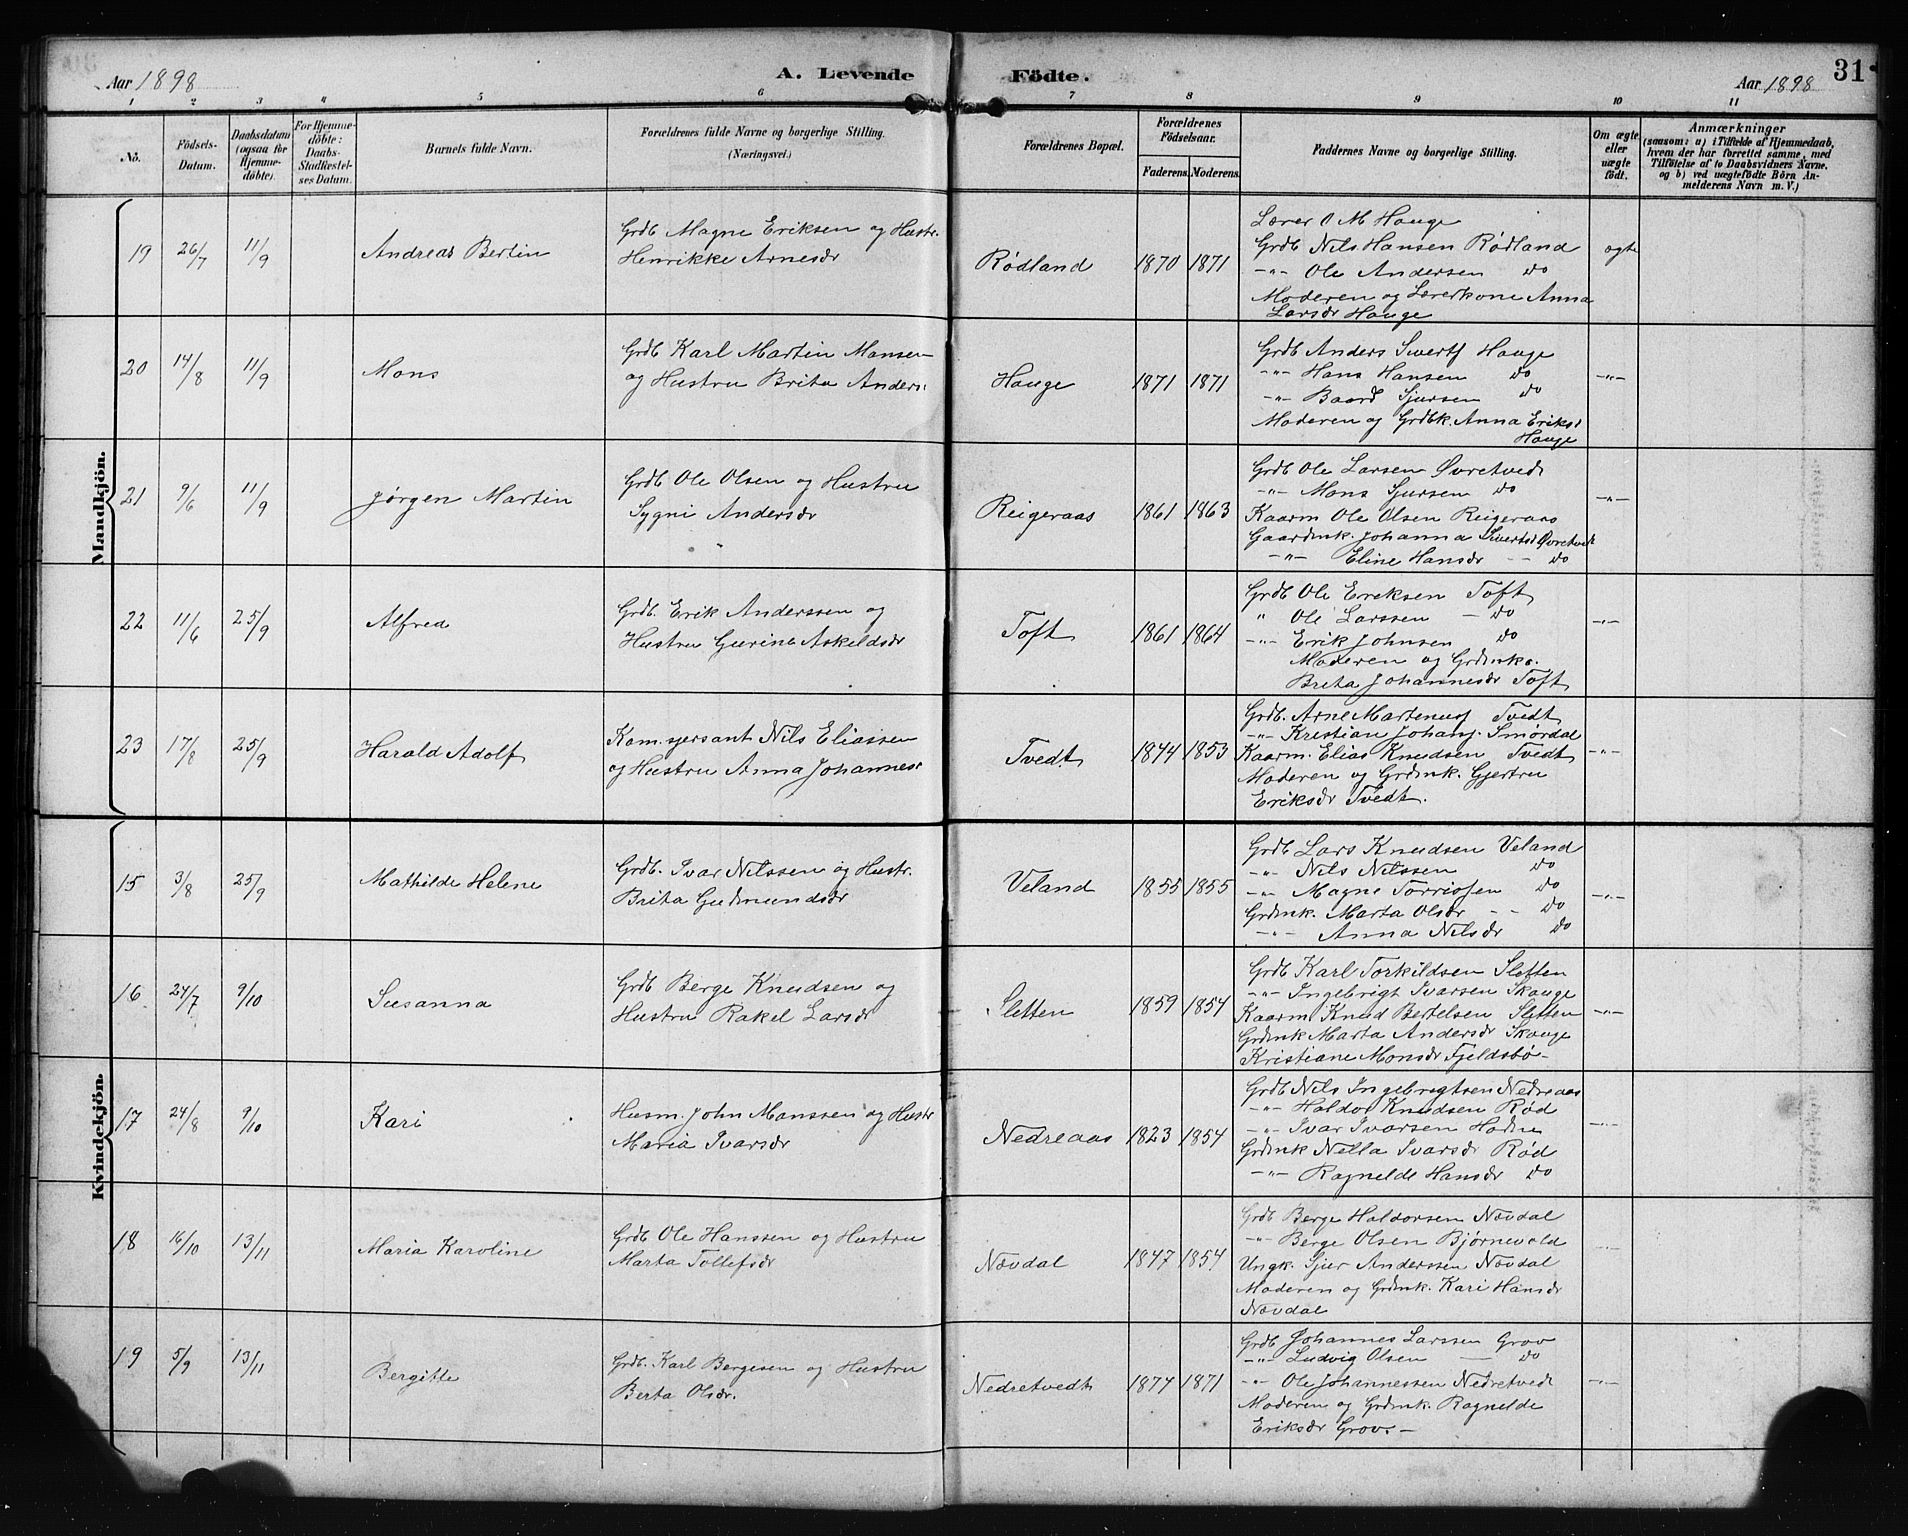 Aar 1898
A. Levende Födte.
Aar 1898
31
1 2 3 4 5 6 7 8 9 10 11
No.
Födsels-
Datum.
Daabsdatum
(ogsaa for
Hjemme-
döbte).
For Hjemme-
döbte:
Daabs-
Stadfæstel-
ses Datum.
Barnets fulde Navn.
Forældrenes fulde Navne og borgerlige Stilling.
(Næringsvei.)
Forældrenes Bopæl.
Forældrenes
Födselsaar.
Faderens. Moderens.
Faddernes Navne og borgerlige Stilling.
Om ægte
eller
uægte
födt.
Anmærkninger
(saasom: a) i Tilfælde af Hjemmedaab,
hvem der har forrettet samme, med
Tilföielse af to Daabsvidners Navne.
og b) ved uægtefödte Börn An-
melderens Navn m. V.)
Mandkjön.
19 26/7 11/9 Andreas Bertin
Grdb Magne Eriksen og Hustr.
Henrikke Arnesdr
Rødland 1870 1871
Lærer O M Hauge
Grdb Nils Hansen Rødland
-"- Ole Andersen do
Moderen og Lærerkone Anna
Larsdr Hauge
ægte
20 14/8 11/9 Mons
Grdb Karl Martin Mansen
og Hustru Brita Anders:
Hauge 1871 1871
Grdb Anders Sivertf Hauge
-"- Hans Hansen do
-"- Baard Sjursen do
Moderen og Grdbk. Anna Eriksd
Hauge
-"-
21 9/6 11/9 Jørgen Martin
Grdb Ole Olsen og Hustru
Sygni Andersdr
Reigeraas 1861 1863
Grdb Ole Larsen Øvretvedt
-"- Mons Sjursen do
Kaarm Ole Olsen Reigeraas
Gaardmk. Johanna Sivertsd Øvretvedt
-"- Eline Hansdr -- do
-"-
22 11/6 25/9 Alfred
Grdb. Erik Anderssen og
Hustru Gurine Askeldsdr
Toft 1861 1864
Grdb Ole Eriksen Toft
" Ole Larssen - do
-"- Erik Johnsen do
Moderen og Grdmk.
Brita Johannesdr Toft
-"-
23 17/8 25/9 Harald Adolf
Kom.sjersant Nils Eliassen
og Hustru Anna Johannesd
Tvedt 1844 1853
Grdb. Arne Martenusf Tvedt
-"- Kristian Johanf. Smørdal
Kaarm. Elias Knudsen Tvedt
Moderen og Grdmk. Gjertru
Eriksdr Tvedt.
-"-
Kvindekjön.
15 3/8 25/9 Mathilde Helene
Grdb. Ivar Nilssen og Hustr.
Brita Gudmundsdr
Veland 1855 1855
Grdb Lars Knudsen Veland
-"- Nils Nilssen do
-"- Magne Torrissen do
Grdmk. Marta Olsdr - - do
-"- Anna Nilsdr do
-"-
16 24/7 9/10 Susanna
Grdb Berge Knudsen og
Hustru Rakel Larsdr
Sletten 1859 1854
Grdb Karl Torkildsen Sletten
-"- Ingebrigt Ivarsen Skauge
Kaarm Knud Bertelsen Sletten
Grdmk Marta Andersdr Skauge
Kristiane Monsdr Fjeldsbø-
-"-
17 24/8 9/10 Kari
Husm. John Manssen og Hustr
Maria Ivarsdr
Nedreaas 1823 1854
Grdb Nils Ingebrigtsen Nedreaas
-"- Haldor Knudsen Rød
-"- Ivar Ivarsen Hodne
Grdmk Nella Ivarsdr Rød
-"- Ragnelde Hansdr do
-"-
18 16/10 13/11 Maria Karoline
Grdb Ole Hanssen og Hustru
Marta Tollefsdr
Nævdal 1847 1854
Grdb Berge Haldorsen Nævdal
-"- Berge Olsen Bjørnevold
Ungk. Sjur Anderssen Nævdal
Moderen og Grdmk. Kari Hansdr
Nævdal
-"-
19 5/9 13/11 Bergitte
Grdb. Karl Bergesen og Hustru
Berta Olsdr.
Nedretvedt 1874 1871
Grdb Johannes Larssen Grov
-"- Ludvig Olsen — do
-"- Ole Johannessen Nedretvedt
Moderen og Grdmk. Ragnelde
Eriksdr Grov. -
-"-